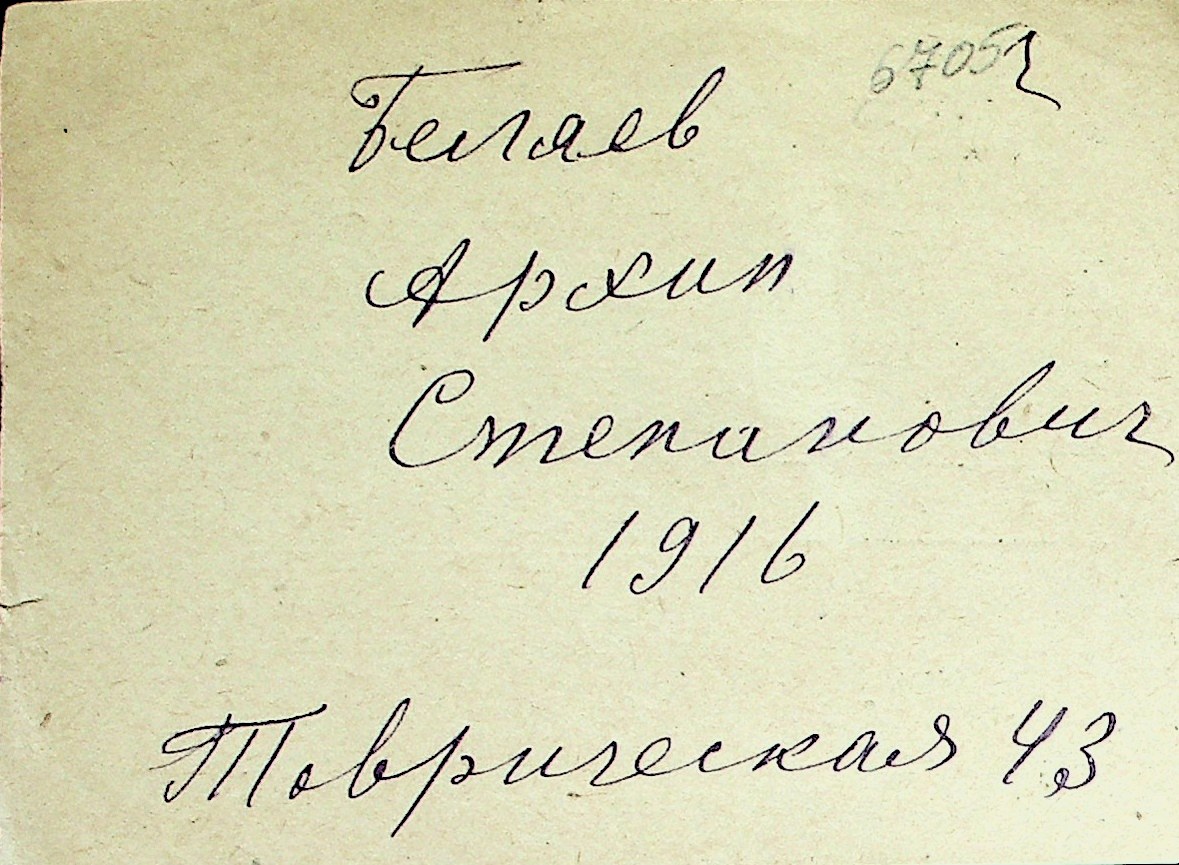 6705 г
Беляев
Архип
Степанович
1916
Товрическая 43